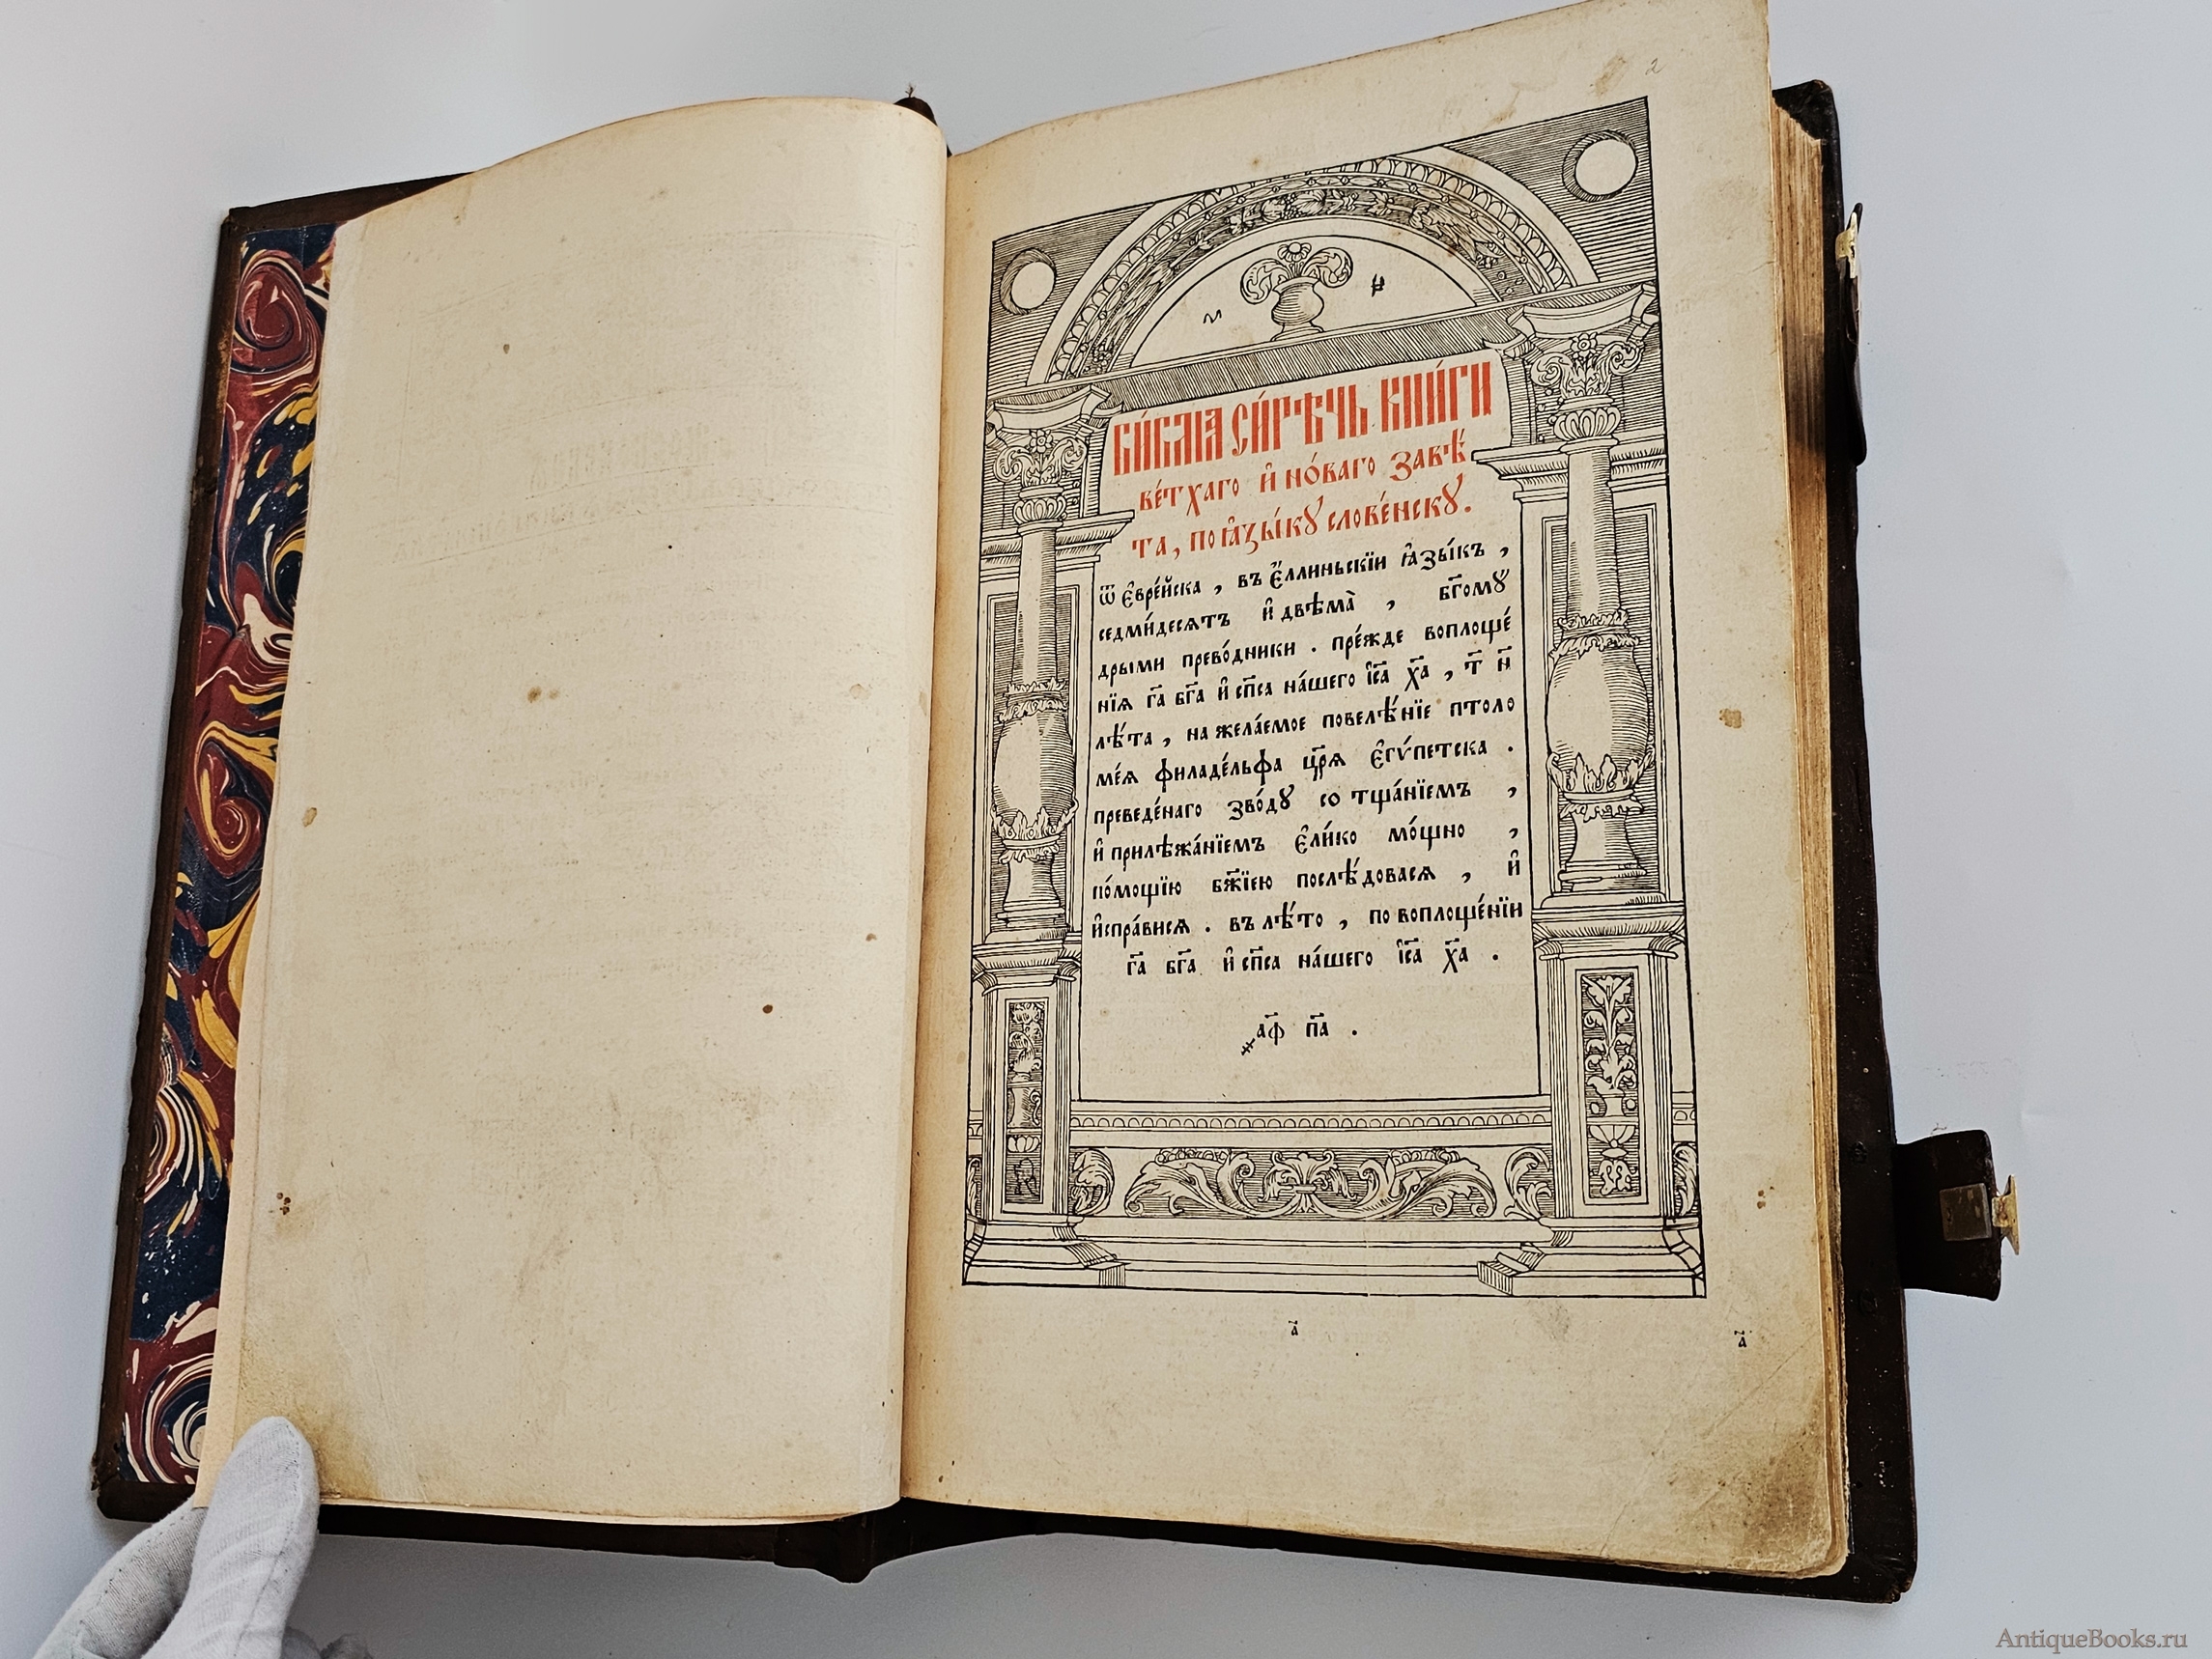 2
м н
би́блїа си́рѣчь кни́ги
ве́тхаго и҆ но́ваго завѣ́
та , по ꙗ҆зы́кꙋ слове́нскꙋ .
ѿ є҆вре́йска , въ є҆́ллиньскїи ꙗ҆зы́къ ,
седми́десѧтъ и҆ двѣма̀ , бг҃омꙋ́
дрыми прево́дники . пре́жде воплоще́
нїѧ гд҃а бг҃а и҆ сп҃са на́шего і҆с҃а хр҃а , т҃ н҃
лѣ́та , на жела́емое повелѣ́нїе птоло
ме́ѧ филаде́льфа цр҃ѧ є҆гѵ́петска .
преведе́наго зво́дꙋ со тща́нїемъ ,
и҆ прилѣжа́нїемъ є҆ли́ко мо́щно ,
по́мощїю бж҃їею послѣ́довасѧ , и҆
и҆спра́висѧ . въ лѣ́то , по воплоще́нїи
гд҃а бг҃а и҆ сп҃са на́шего і҆с҃а хр҃а .
҂аф҃ п҃а .
а҃ а҃
AntiqueBooks.ru